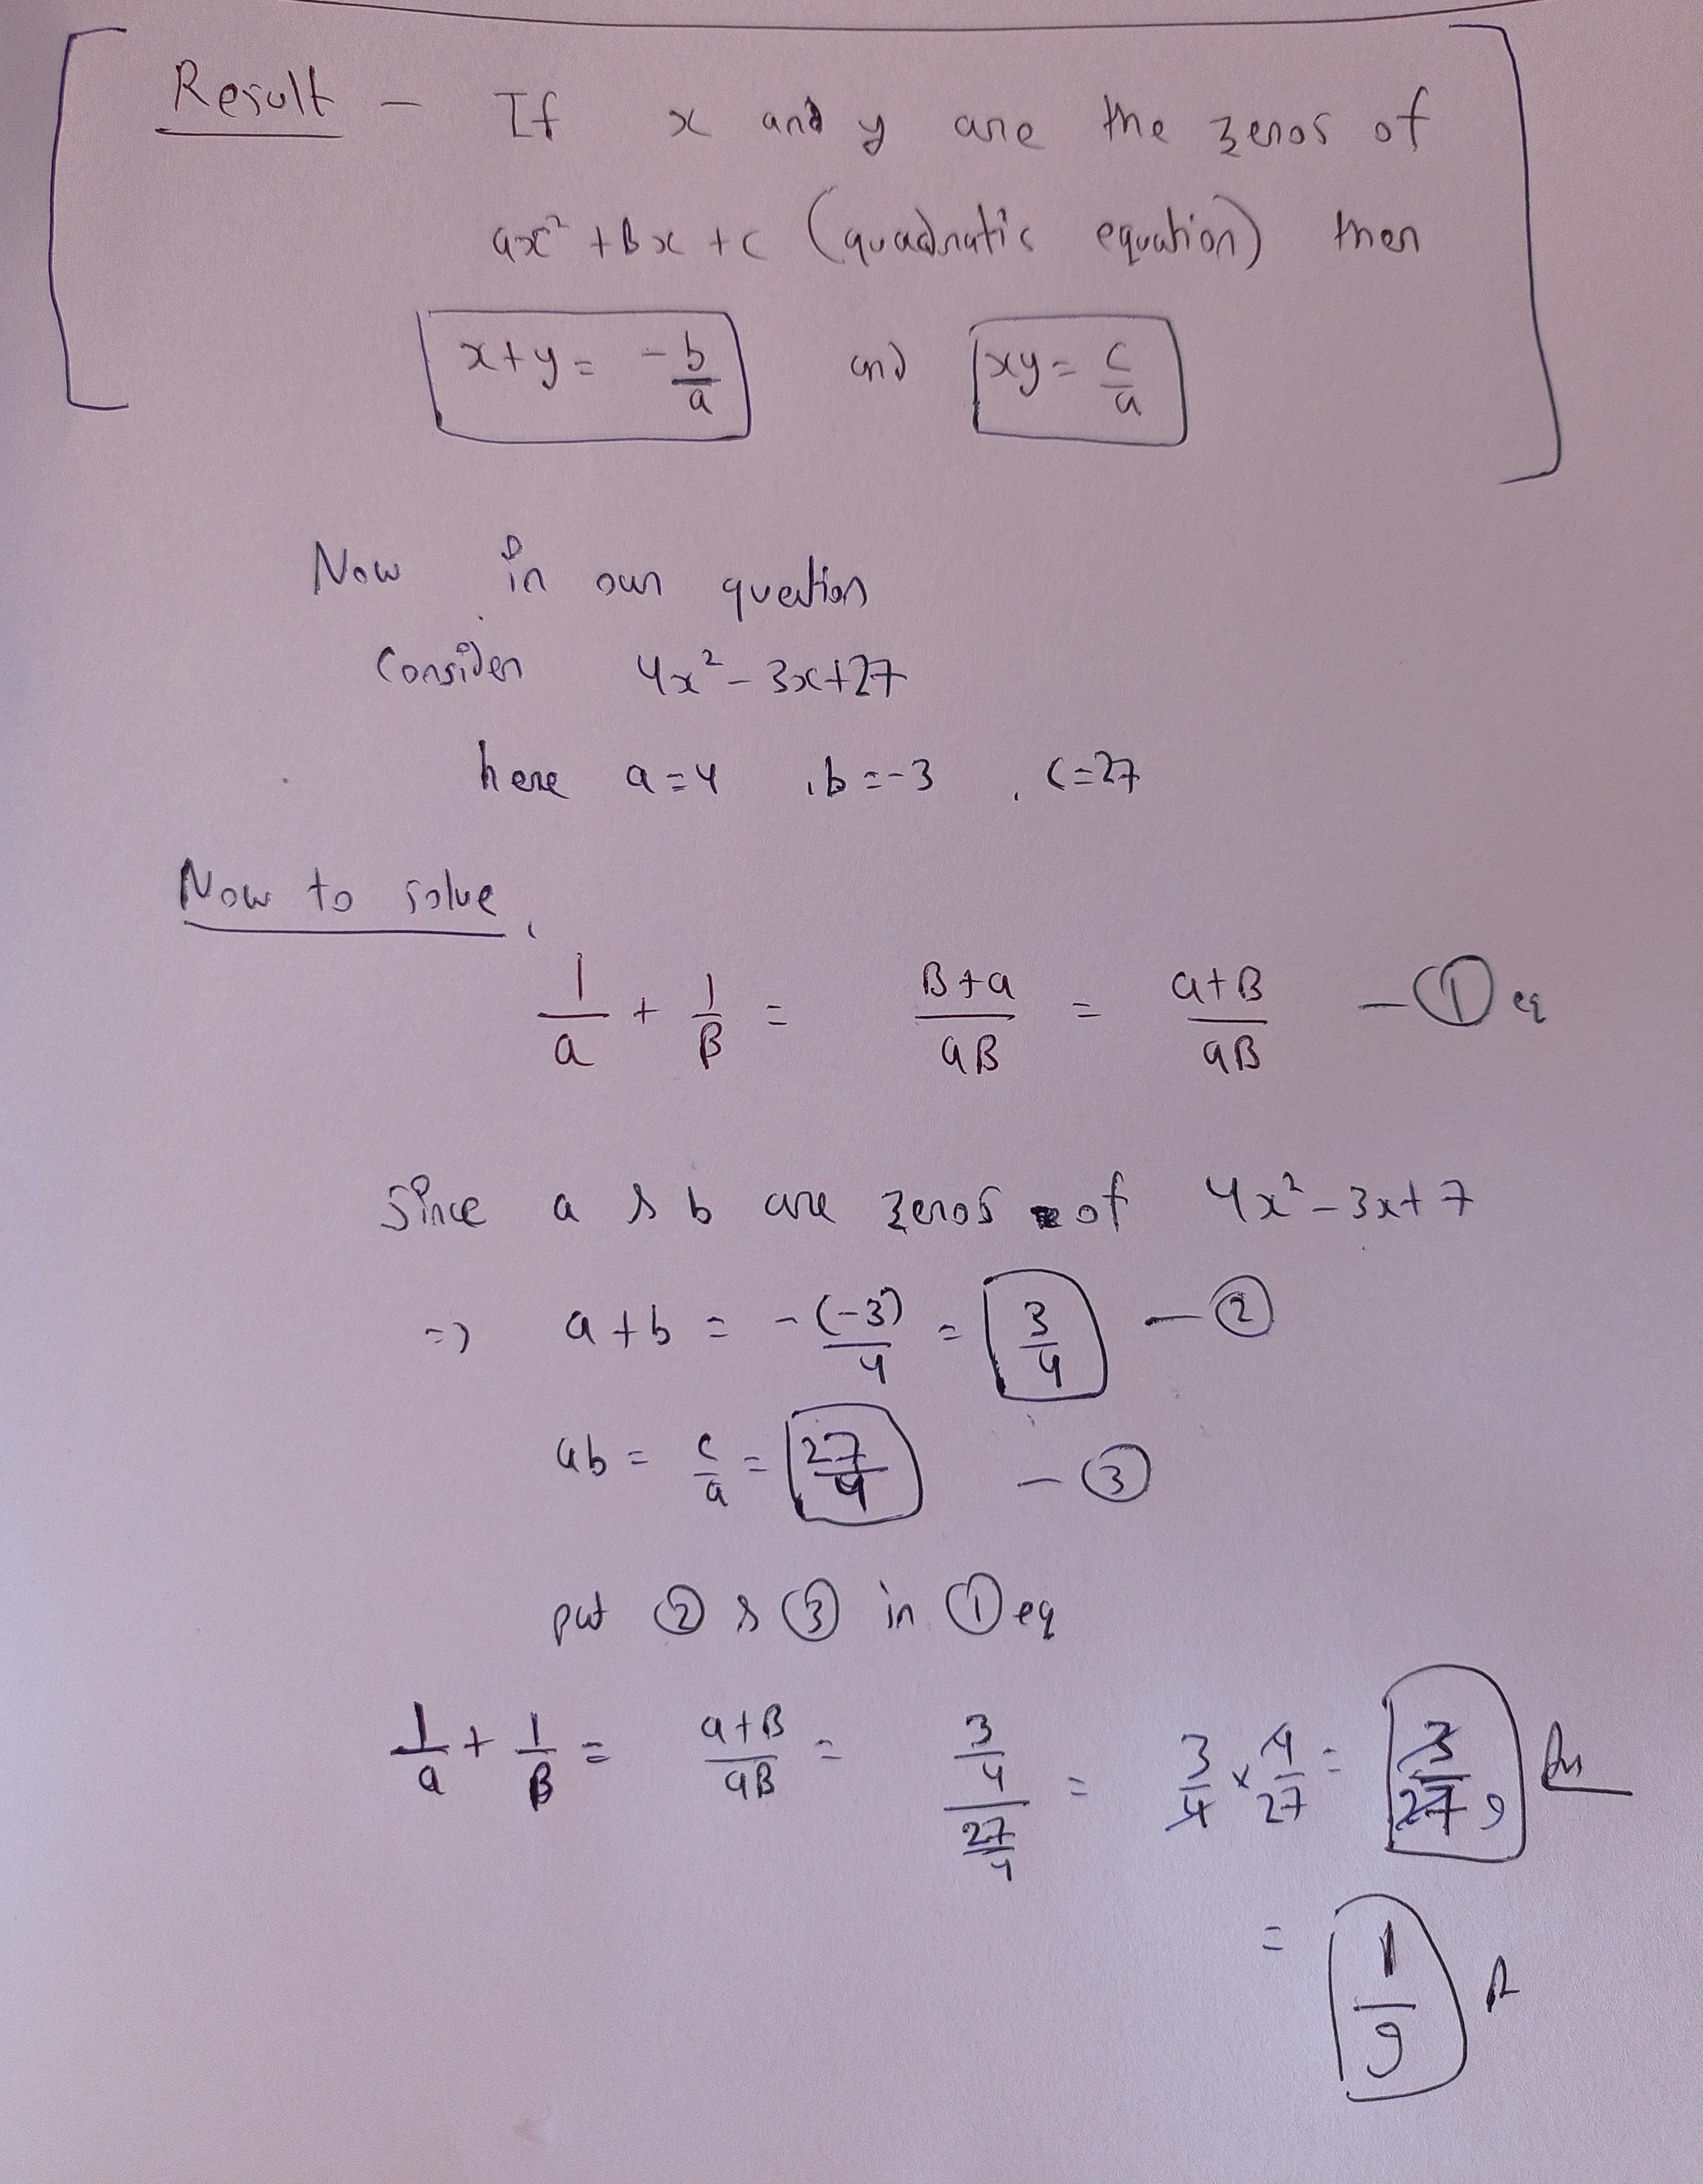 Result - If x and y are the zeros of
ax² + Bx + c (quadratic equation) then
x+y = -b/a and xy = c/a
Now in our question
Consider 4x² - 3x + 27
here a = 4 , b = -3 , c = 27
Now to solve,
1/a + 1/B = B+a/aB = a+B/aB - ① eq
Since a & b are zeros of 4x² - 3x + 7
=> a + b = -(-3)/4 = 3/4 - ②
ab = c/a = 27/4 - ③
put ② & ③ in ① eq
1/a + 1/B = a+B/aB = 3/4 / 27/4 = 3/4 × 4/27 = 3/27 9
= 1/9